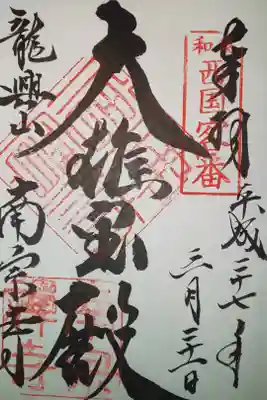 奉拝
平成二十七年
三月二十一日
西国客番
大雄宝殿
龍興山
南宗寺